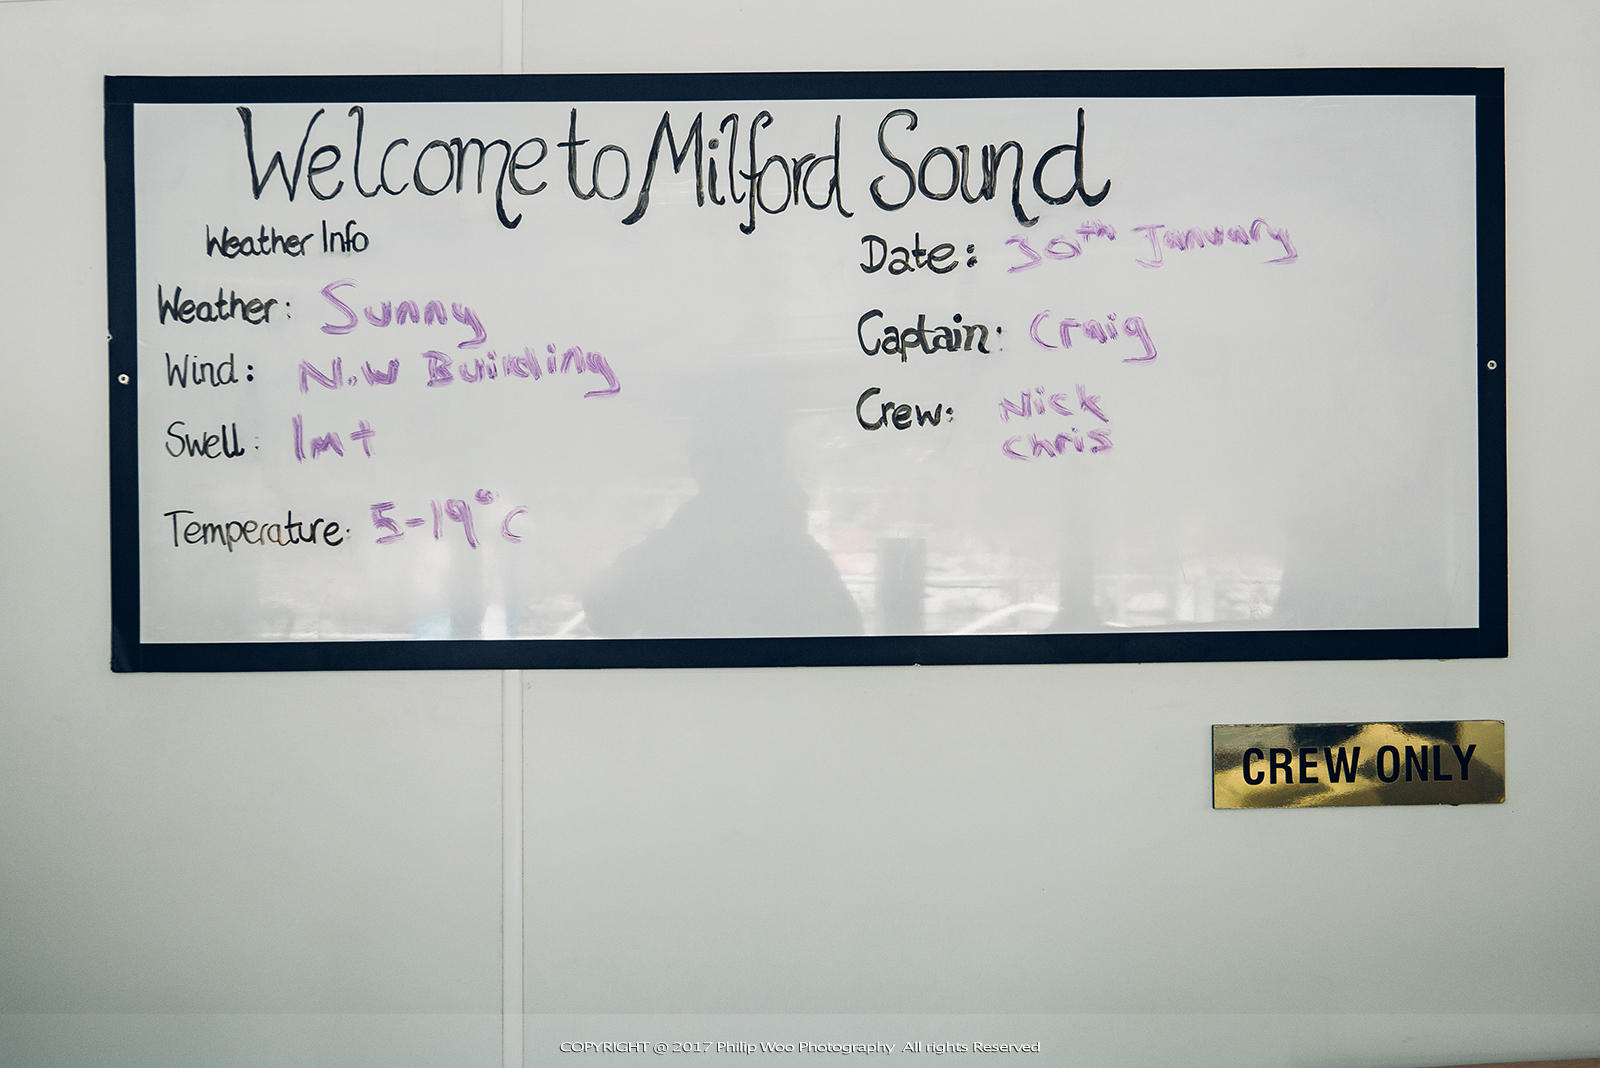 Welcome to Milford Sound
Weather Info
Weather: Sunny
Wind: N.W Building
Swell: 1m+
Temperature: 5-19°C
Date: 30th January
Captain: Craig
Crew: Nick
Chris
CREW ONLY
COPYRIGHT @ 2017 Philip Woo Photography All rights Reserved